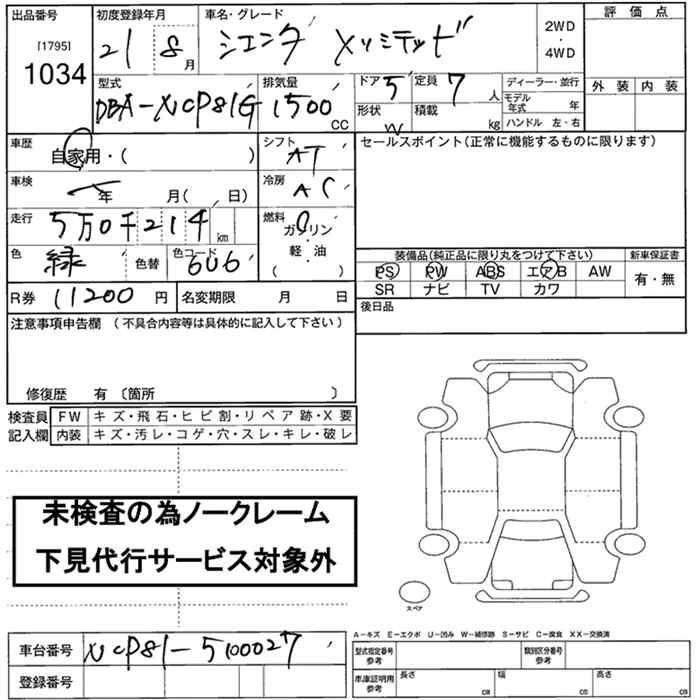 出品番号 初度登録年月 車名・グレード 評価点
[1795] 1034 21 8月 シエンタ Xリミテッド 2WD・4WD
外装 内装
型式 排気量 ドア 5 定員 7人 ディーラー・並行
DBA-NCP81G 1500CC 形状 W 積載 kg モデル年式 年
ハンドル 左・右
車歴 自家用・( ) シフト AT セールスポイント(正常に機能するものに限ります)
車検 年 月( 日) 冷房 AC
走行 5万0千214km 燃料 ガソリン
軽・油
( )
色 緑 色替 色コード 6U6
装備品(純正品に限り丸をつけて下さい) 新車保証書
PS PW ABS エアB AW 有・無
SR ナビ TV カワ
R券 11200円 名変期限 月 日 後日品
注意事項申告欄 (不具合内容等は具体的に記入して下さい)
修復歴 有 〔箇所 〕
検査員 FW キズ・飛石・ヒビ割・リペア跡・X要
記入欄 内装 キズ・汚レ・コゲ・穴・スレ・キレ・破レ
未検査の為ノークレーム
下見代行サービス対象外
スペア
A-キズ E-エクボ U-凹み W-補修跡 S-サビ C-腐食 XX-交換済
車台番号 NCP81-5100027 型式指定番号 参考 類別区分番号 参考
登録番号 車庫証明用 参考 長さ cm 幅 cm 高さ cm